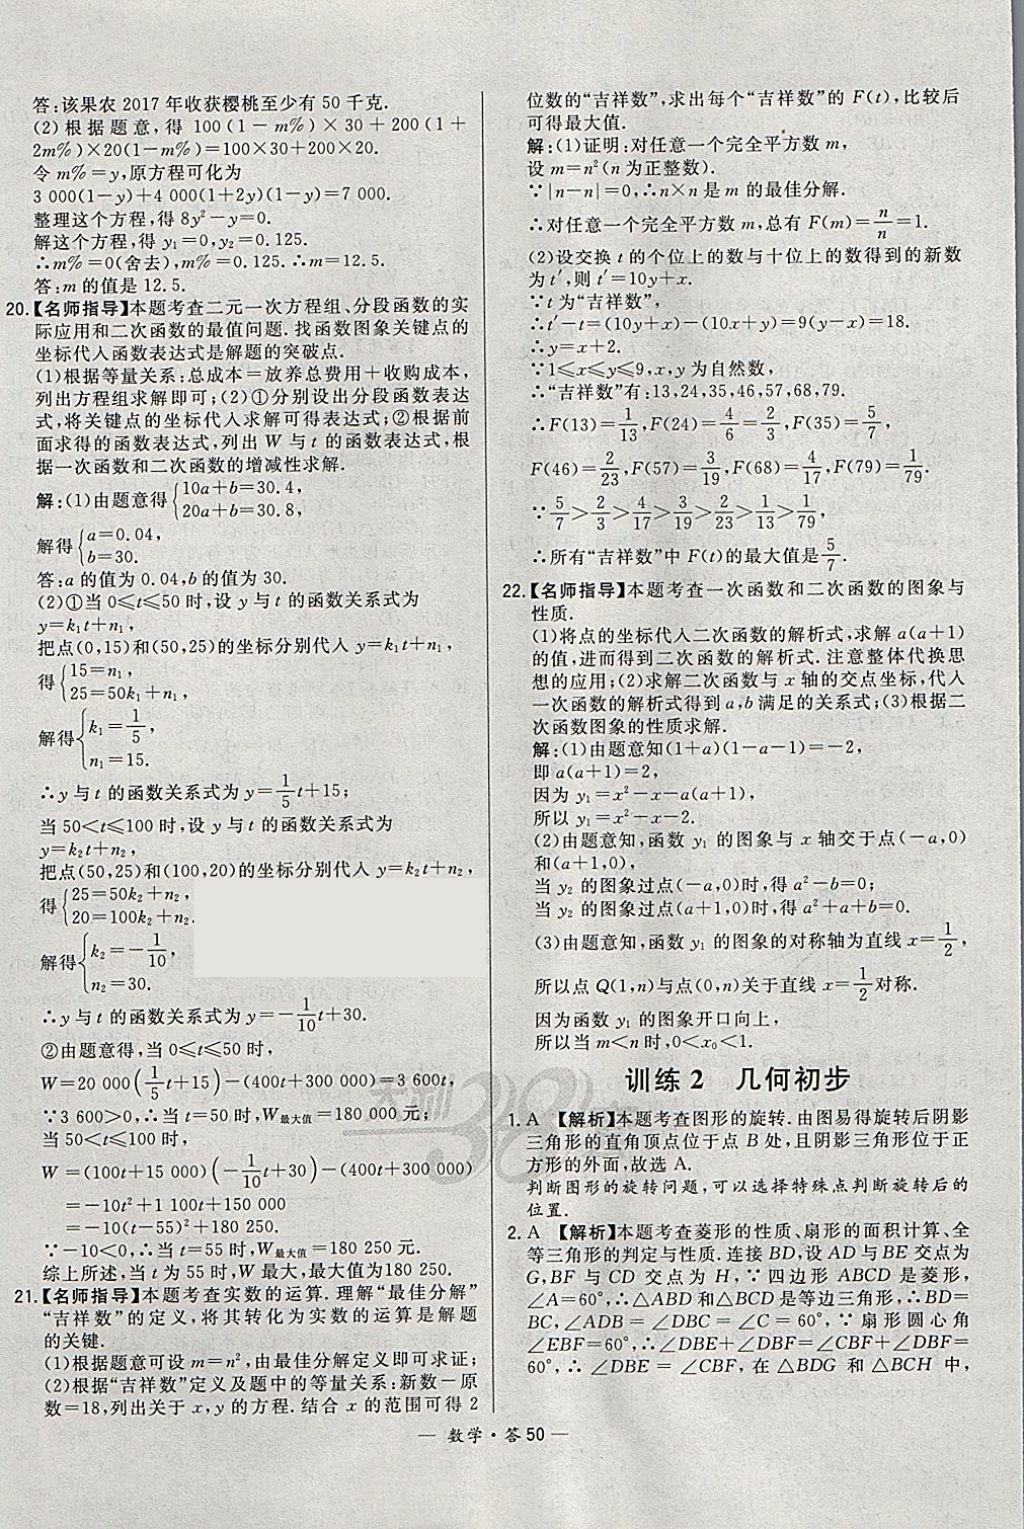 答:该果农 2017 年收获樱桃至少有 50 千克.
(2)根据题意,得 100(1-m%)×30+200(1+
2m%)×20(1-m%)=100×30+200×20.
令 m%=y,原方程可化为
3 000(1-y)+4 000(1+2y)(1-y)=7 000.
整理这个方程,得 8y²-y=0.
解这个方程,得 y₁=0,y₂=0.125.
∴m%=0(舍去),m%=0.125.∴m=12.5.
答:m 的值是 12.5.
20.【名师指导】本题考查二元一次方程组、分段函数的实
际应用和二次函数的最值问题.找函数图象关键点的
坐标代入函数表达式是解题的突破点.
(1)根据等量关系:总成本=放养总费用+收购成本,
列出方程组求解即可;(2)①分别设出分段函数表达
式,将关键点的坐标代入求解可得表达式;②根据前
面求得的函数表达式,列出 W 与 t 的函数表达式,根
据一次函数和二次函数的增减性求解.
解:(1)由题意得{10a+b=30.4,
20a+b=30.8,
解得{a=0.04,
b=30.
答:a 的值为 0.04,b 的值为 30.
(2)①当 0≤t≤50 时,设 y 与 t 的函数关系式为
y=k₁t+n₁,
把点(0,15)和(50,25)的坐标分别代入 y=k₁t+n₁,
得{15=n₁,
25=50k₁+n₁,
解得{k₁=1/5,
n₁=15.
∴y 与 t 的函数关系式为 y=1/5t+15;
当 50<t≤100 时,设 y 与 t 的函数关系式为
y=k₂t+n₂,
把点(50,25)和(100,20)的坐标分别代入 y=k₂t+n₂,
得{25=50k₂+n₂,
20=100k₂+n₂.
解得{k₂=-1/10,
n₂=30.
∴y 与 t 的函数关系式为 y=-1/10t+30.
②由题意得,当 0≤t≤50 时,
W=20 000(1/5t+15)-(400t+300 000)=3 600t,
∵3 600>0,∴当 t=50 时,W最大值=180 000 元;
当 50<t≤100 时,
W=(100t+15 000)(-1/10t+30)-(400t+300 000)
=-10t²+1 100t+150 000
=-10(t-55)²+180 250.
∵-10<0,∴当 t=55 时,W最大值=180 250 元.
综上所述,当 t 为 55 时,W 最大,最大值为180 250.
21.【名师指导】本题考查实数的运算.理解“最佳分解”
“吉祥数”的定义,将其转化为实数的运算是解题
的关键.
(1)根据题意可设 m=n²,由最佳分解定义即可求证;
(2)根据“吉祥数”定义及题中的等量关系:新数-原
数=18,列出关于 x,y 的方程.结合 x 的范围可得 2
位数的“吉祥数”,求出每个“吉祥数”的 F(t),比较后
可得最大值.
解:(1)证明:对任意一个完全平方数 m,
设 m=n²(n 为正整数).
∵|n-n|=0,∴n×n 是 m 的最佳分解.
∴对任意一个完全平方数 m,总有 F(m)=n/n=1.
(2)设交换 t 的个位上的数与十位上的数得到的新数
为 t′,则 t′=10y+x.
∵t 为“吉祥数”,
∴t′-t=(10y+x)-(10x+y)=9(y-x)=18.
∴y=x+2.
∵1≤x≤y≤9,x,y 为自然数,
∴“吉祥数”有:13,24,35,46,57,68,79.
∴F(13)=1/13,F(24)=4/6=2/3,F(35)=5/7,
F(46)=2/23,F(57)=3/19,F(68)=4/17,F(79)=1/79.
∵5/7>2/3>4/17>3/19>2/23>1/13>1/79,
∴所有“吉祥数”中 F(t)的最大值是5/7.
22.【名师指导】本题考查一次函数和二次函数的图象与
性质.
(1)将点的坐标代入二次函数的解析式,求解 a(a+1)
的值,进而得到二次函数的解析式.注意整体代换思
想的应用;(2)求解二次函数与 x 轴的交点坐标,代入
一次函数的解析式得到 a,b 满足的关系式;(3)根据二
次函数图象的性质求解.
解:(1)由题意知(1+a)(1-a-1)=-2,
即 a(a+1)=2,
因为 y₁=x²-x-a(a+1),
所以 y₁=x²-x-2.
(2)由题意知,函数 y₁ 的图象与 x 轴交于点(-a,0)
和(a+1,0).
当 y₂ 的图象过点(-a,0)时,得 a²-b=0;
当 y₂ 的图象过点(a+1,0)时,得 a²+a+b=0.
(3)由题意知,函数 y₁ 的图象的对称轴为直线 x=1/2,
所以点 Q(1,n)与点(0,n)关于直线 x=1/2对称.
因为函数 y₁ 的图象开口向上,
所以当 m<n 时,0<x₀<1.
训练 2 几何初步
1. A 【解析】本题考查图形的旋转.由图易得旋转后阴影
三角形的直角顶点位于点 B 处,且阴影三角形位于正
方形的外面,故选 A.
判断图形的旋转问题,可以选择特殊点判断旋转后的
位置.
2. A 【解析】本题考查菱形的性质、扇形的面积计算、全
等三角形的判定与性质.连接 BD,设 AD 与 BE 交点为
G,BF 与 CD 交点为 H,∵四边形 ABCD 是菱形,
∠A=60°,∴△ABD 和△BCD 是等边三角形,∴BD=
BC,∠ADB=∠DBC=∠C=60°,∵扇形圆心角
∠EBF=60°,∴∠DBE+∠DBF=∠CBF+∠DBF=
60°,∴∠DBE=∠CBF,在△BDG 和△BCH 中,
— 数学·答 50 —